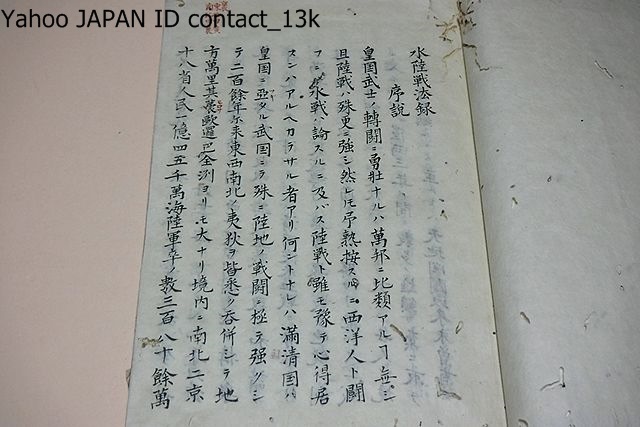 Yahoo JAPAN ID contact_13k
水陸戦法録
序説
皇国武士ノ轉闘ニ勇壮ナルハ萬邦ニ比類アルヿ無シ
且陸戦ハ殊更ニ強シ然レ𪜈予熟按スルニ西洋人ト闘
フニ水戦ハ論スルニ及バス陸戦ト雖モ豫テ心得居
スンハアルヘカラサル者アリ何ントナレハ満清国ハ
皇国ニ亞タル武国ニテ殊ニ陸地ノ戦闘ニ極テ强クシ
テ二百餘年尓来東西南北ノ夷狄ヲ皆悉ク呑併シテ地
方萬里其廣歐邏巴全洲ヨリモ大ナリ境内ニ南北二京
十八省人民一億四五千萬海陸軍卒ノ数三百八十餘萬